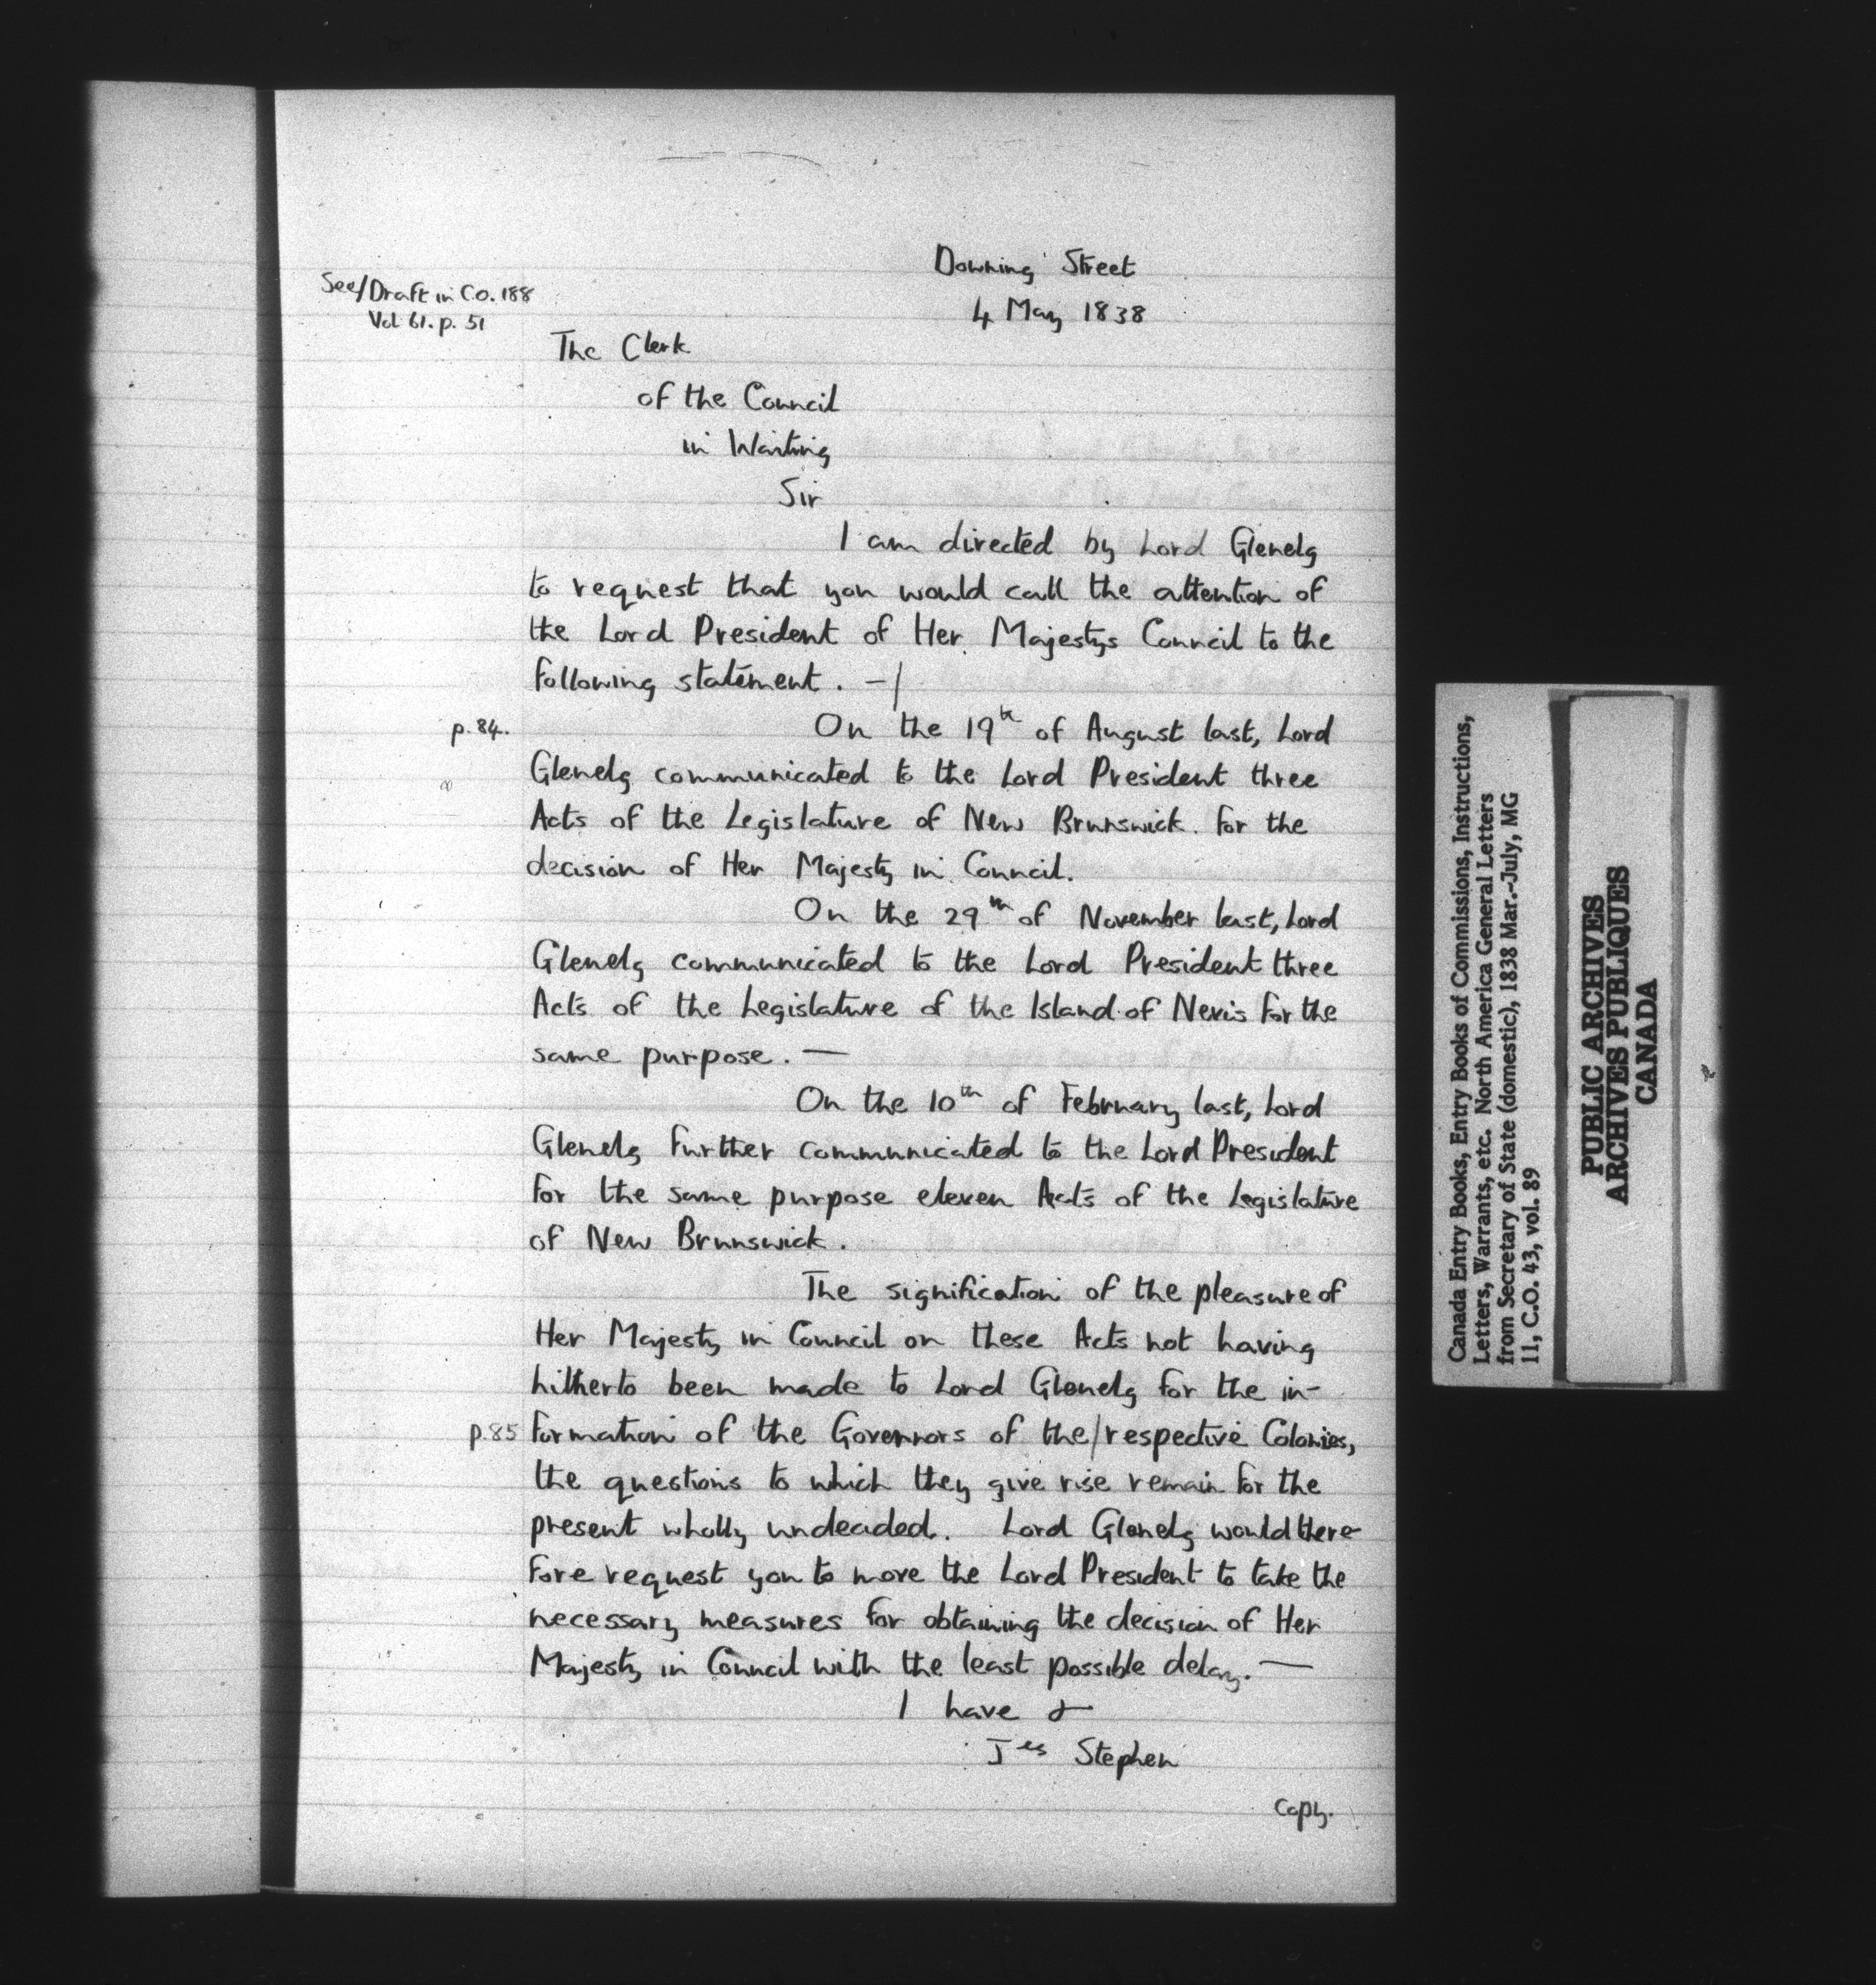 Downing Street
4 May 1838
See/Draft in C.O. 188
Vol 61. p. 51
The Clerk
of the Council
in Waiting
Sir
I am directed by Lord Glenelg
to request that you would call the attention of
the Lord President of Her Majestys Council to the
following statement. —/
p.84. On the 19th of August last, Lord
Glenelg communicated to the Lord President three
Acts of the Legislature of New Brunswick for the
decision of Her Majesty in Council.
On the 29th of November last, Lord
Glenelg communicated to the Lord President three
Acts of the Legislature of the Island of Nevis for the
same purpose. —
On the 10th of February last, Lord
Glenelg further communicated to the Lord President
for the same purpose eleven Acts of the Legislature
of New Brunswick.
The signification of the pleasure of
Her Majesty in Council on these Acts not having
hitherto been made to Lord Glenelg for the in-
p.85 formation of the Governors of the/respective Colonies,
the questions to which they give rise remain for the
present wholly undecided. Lord Glenelg would there-
fore request you to move the Lord President to take the
necessary measures for obtaining the decision of Her
Majesty in Council with the least possible delay. —
I have &
Jes Stephen
Copy.
Canada Entry Books, Entry Books of Commissions, Instructions,
Letters, Warrants, etc. North America General Letters
from Secretary of State (domestic), 1838 Mar.-July, MG
11, C.O. 43, vol. 89
PUBLIC ARCHIVES
ARCHIVES PUBLIQUES
CANADA